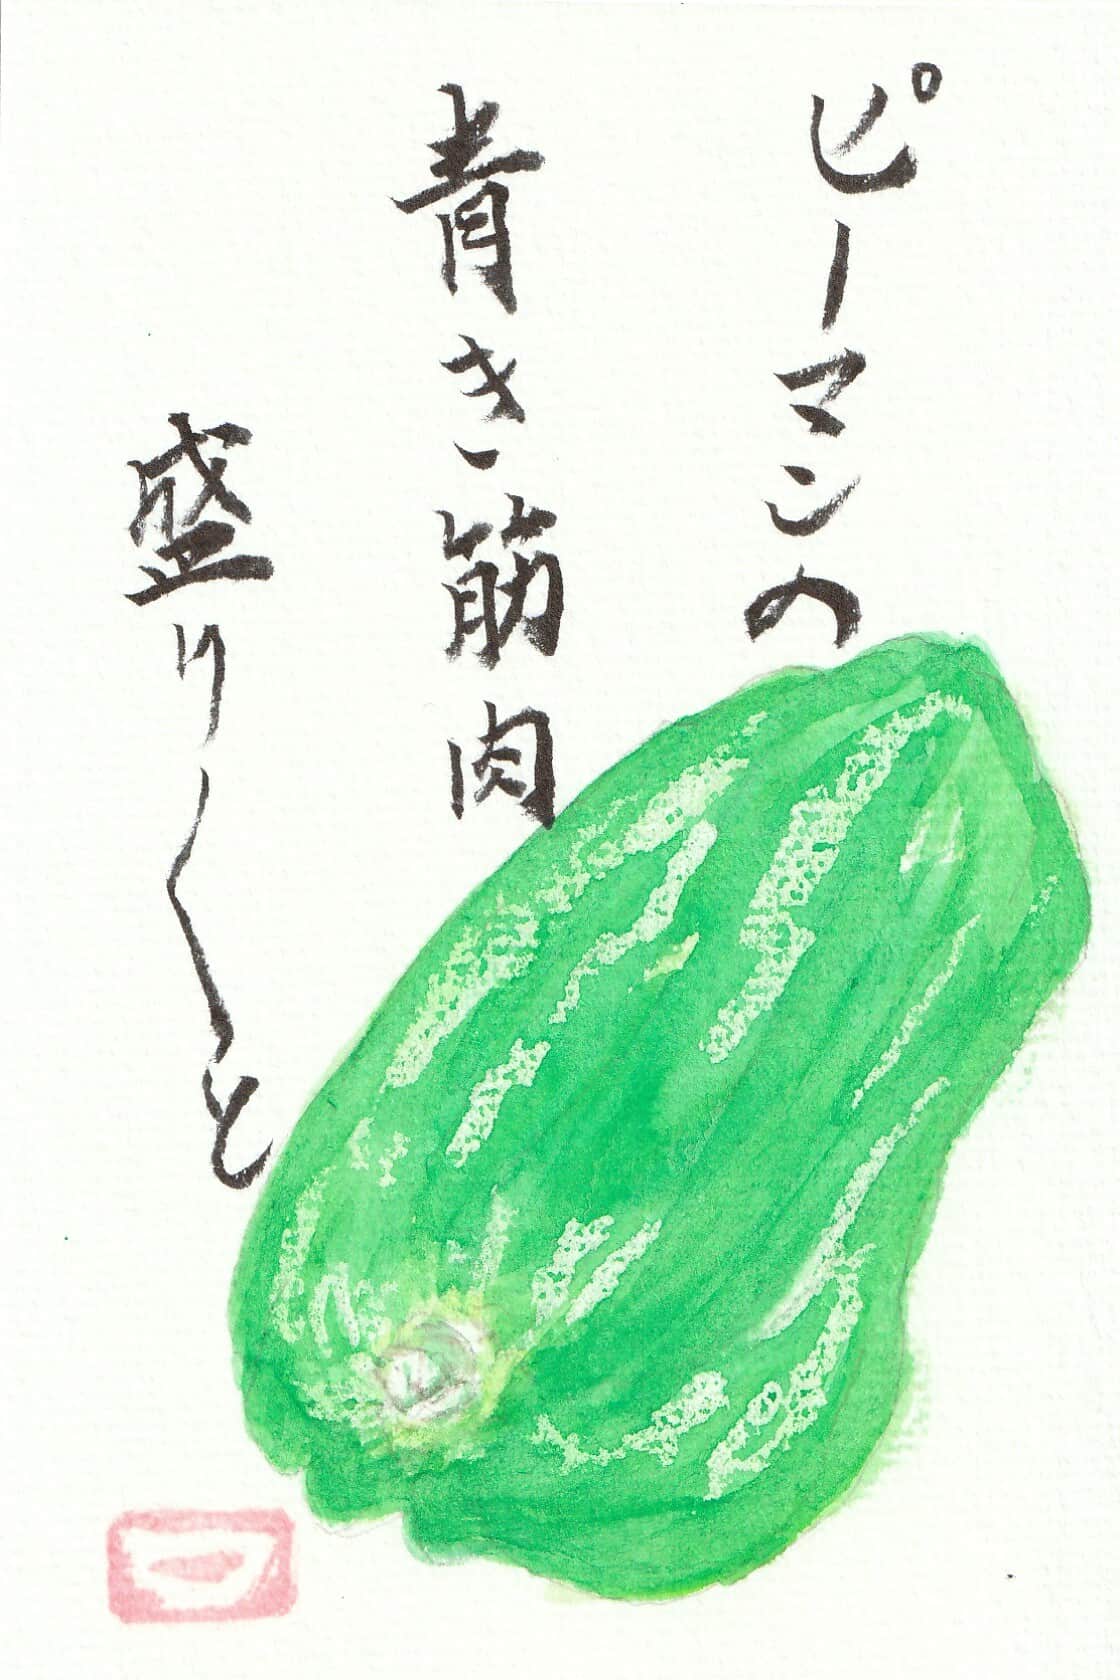 ピーマンの
青き筋肉
盛り〳〵と